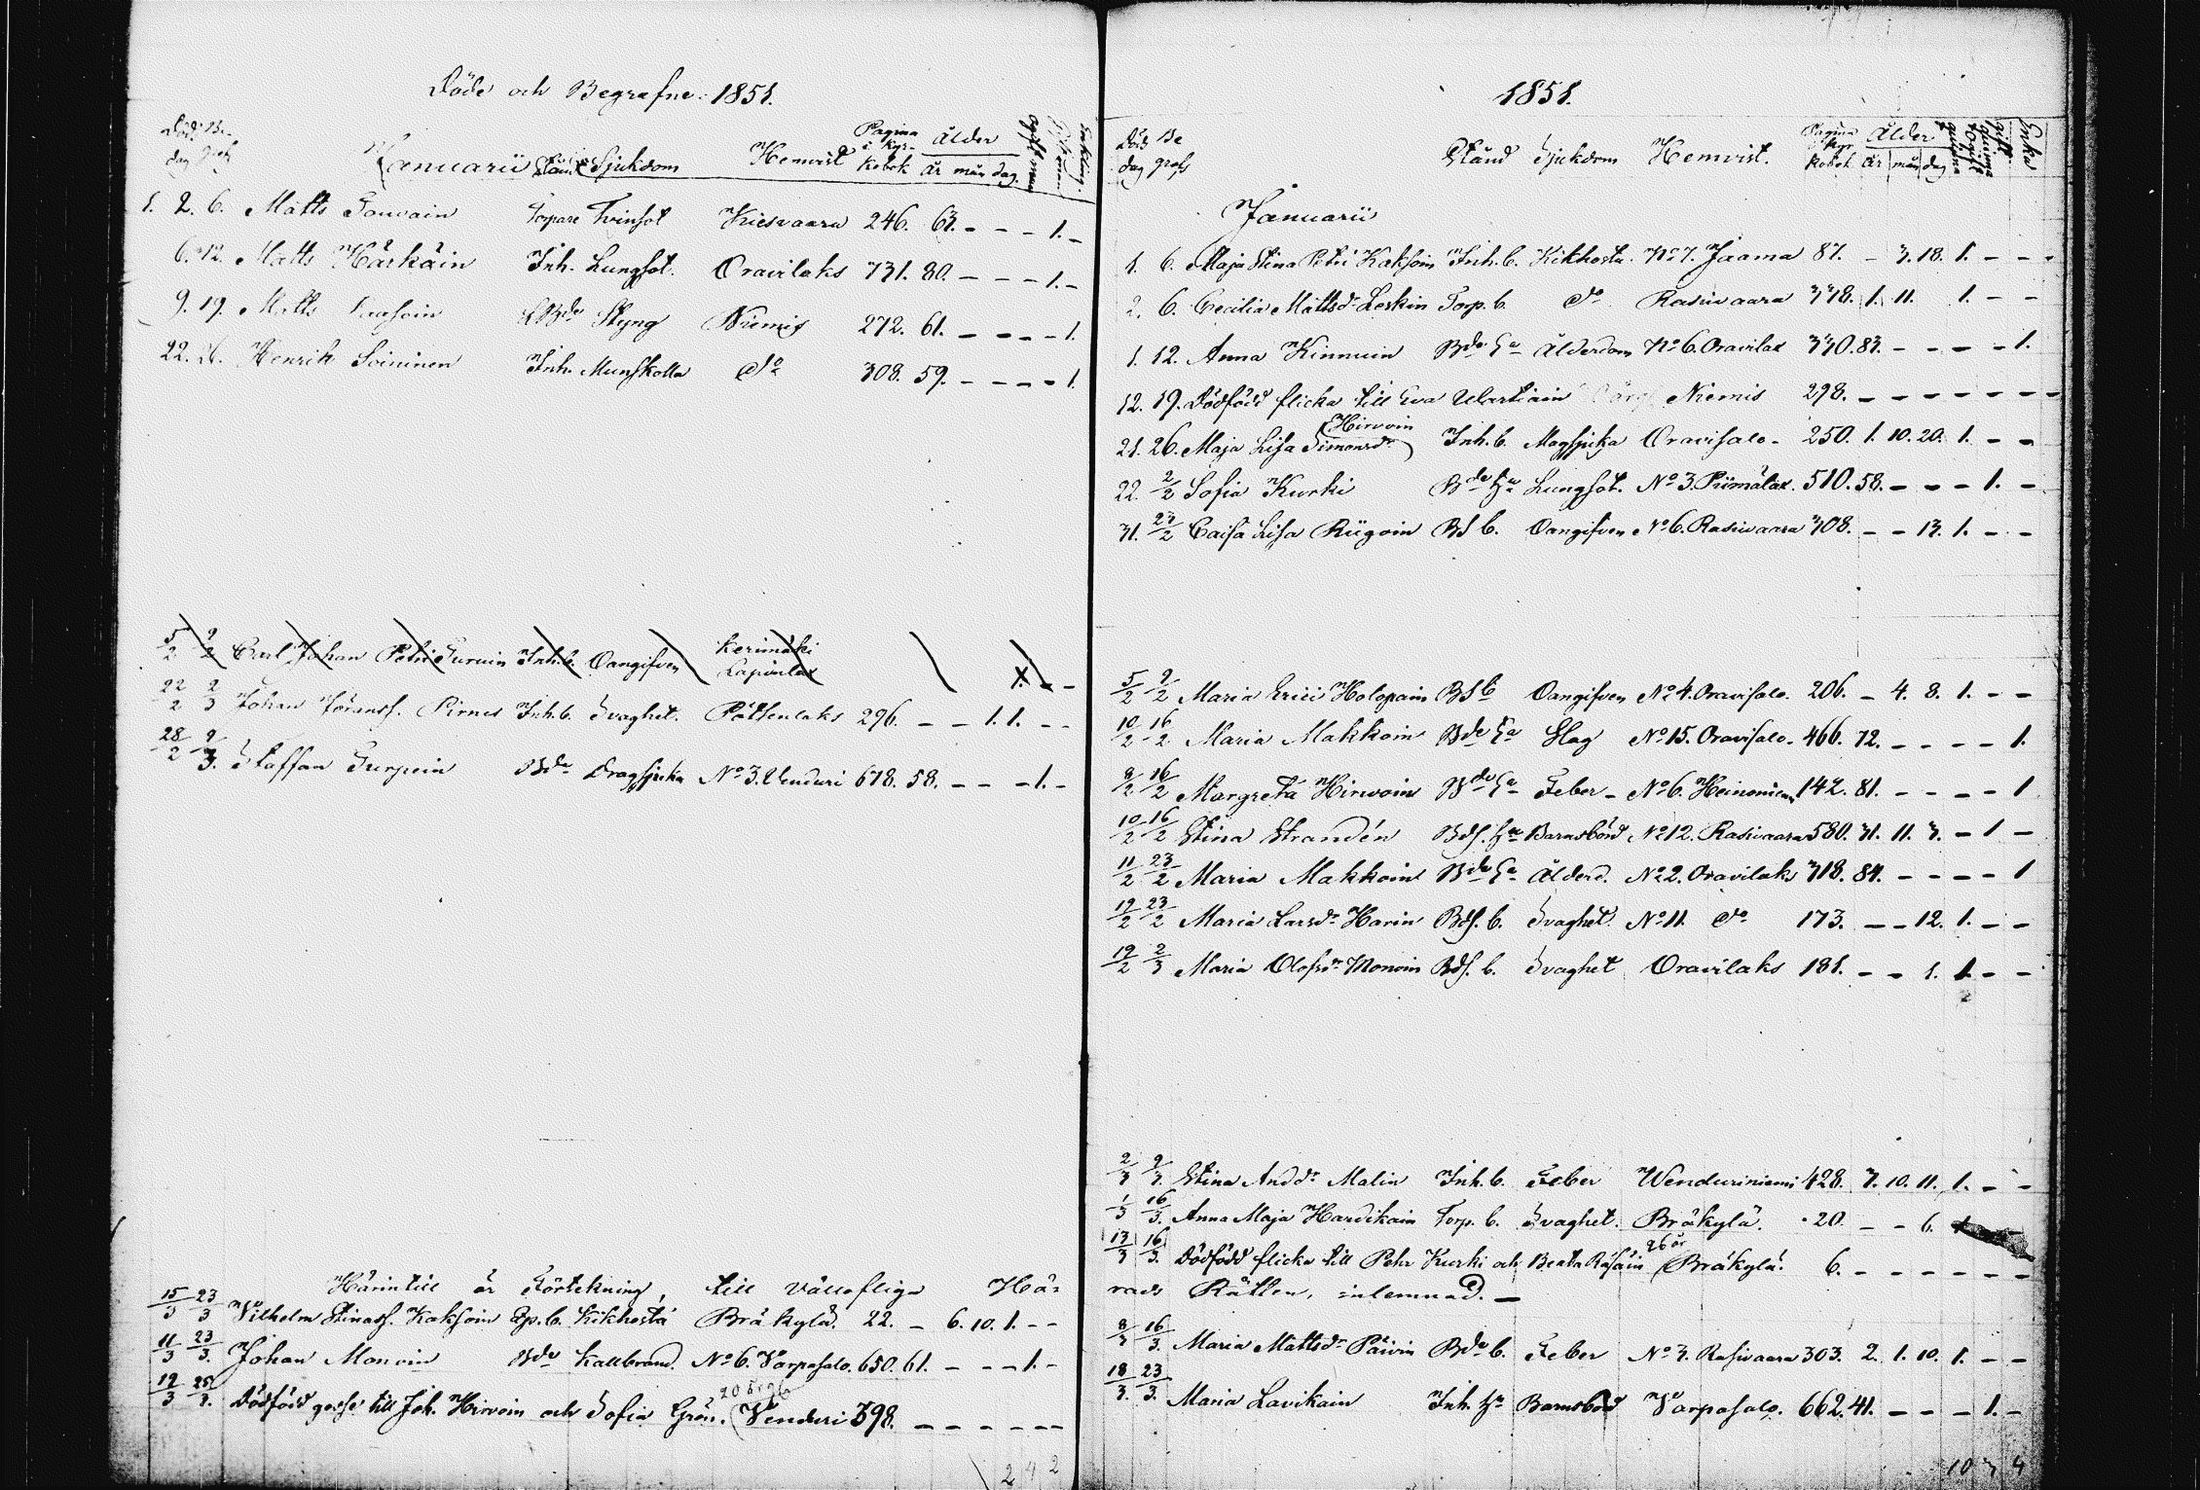 Döde och Begrafne 1851.
Död dag Begrafs Januarii Stånd Sjukdom Hemvist Pagina i Kyrkobok Ålder år mån dag
1. 2. 6. Matts Torpare Kiesvaara 246. 63. - - - 1. -
6. 12. Matts Härkäin Inh. Lungsot. Oravilaks 731. 80. - - - 1. -
9. 19. Matts Styng Niemis 272. 61. - - - - 1.
22. 26. Henrik Soininen Inh. do 308. 59. - - - - 1.
5/2 9/2 Carl Johan Petri Turuin Inh. b. Oangifven Kerimäki
22/2 2/3 Johan Göranss. Pirnes Inh. b. Svaghet. Potsenlaks 296. - - 1. 1. - -
28/2 9/3. Staffan Turpein Bde Dragsjuka No 3. Venduri 678. 58. - - - 1. -
Härintill är Förtekning, till välloflige Hä-
15/3 23/3 Vilhelm Stinass. Kaksoin Kikhosta Bräkylä. 22. - 6. 10. 1. - -
11/3 23/3. Johan Monoin Bde Kallbrand. No 6. Varpasalo. 650. 61. - - - 1. -
12/3 25/3. Dödfödd gosse till Joh. Hirvoin och Sofia Grön. Venduri 398. - - - - - -
2 4 2
1851.
Död dag Begrafs Stånd Sjukdom Hemvist. Pagina i Kyrkobok Ålder år mån dag Enka
Januarii
1. 6. Maja Stina Petri Kaksoin Inh. b. Kikhosta. No 7. Jaama 87. - 3. 18. 1. - - -
2. 6. Cecilia Mattsdr Leskin Torp. b. do Rasivaara 378. 1. 11. 1. - -
1. 12. Anna Kinnuin Bde Ea Ålderdom No 6. Oravilax 330. 83. - - - - 1.
12. 19. Dödfödd flicka till Eva Wartiain Niemis 298. - - - - - - -
Hirvoin
21. 26. Maja Lisa Simonsdr Inh. b. Magsjuka Oravisalo - 250. 1. 10. 20. 1. - -
22. 2/2 Sofia Kurki Bde Hu Lungsot. No 3. Piimälax. 510. 58. - - - 1. -
31. 23/2 Caisa Lisa Riigoin BS b. Oangifven No 6. Rasivaara 308. - - 13. 1. - -
5/2 9/2 Maria Erici Holopain BS b Oangifven No 4. Oravisalo. 206. - 4. 8. 1. - -
10/2 16/2 Maria Makkoin Bde Ea Slag No 15. Oravisalo. 466. 72. - - - - 1.
8/2 16/2 Margreta Hirvoin Bde Ea Feber - No 6. Heinoniemi 142. 81. - - - - 1
10/2 16/2 Stina Strandén Bds. Hu Barnsbörd No 12. Rasivaara 580. 31. 11. 3. - 1 -
11/2 23/2 Maria Makkoin Bde Ea Ålderd. No 2. Oravilaks 318. 84. - - - - 1
19/2 23/2 Maria Larsdr Havin Bds. b. Svaghet No 11. do 173. - - 12. 1. - -
19/2 2/3 Maria Olofsdr Monoin Bds. b. Svaghet Oravilaks 181. - - 1. 1. - -
2/3 9/3. Stina Anddr Malin Inh. b. Feber Venduriniemi 428. 7. 10. 11. 1. - -
1/3 16/3. Anna Maja Hardikain Torp. b. Svaghet. Bräkylä. 20. - - 6.
26 år
13/3 16/3. Dödfödd flicka till Pehr Kurki och Beata Räsäin Bräkylä. 6. - - - - - -
rads Rätten, inlemnad. -
8/3 16/3. Maria Mattsdr Päivin Bde b. Feber No 3. Rasivaara 303. 2. 1. 10. 1. - -
18/3. 23/3. Maria Lavikain Inh. Hu Barnsbörd Varpasalo. 662. 41. - - - 1. -
10 3 4